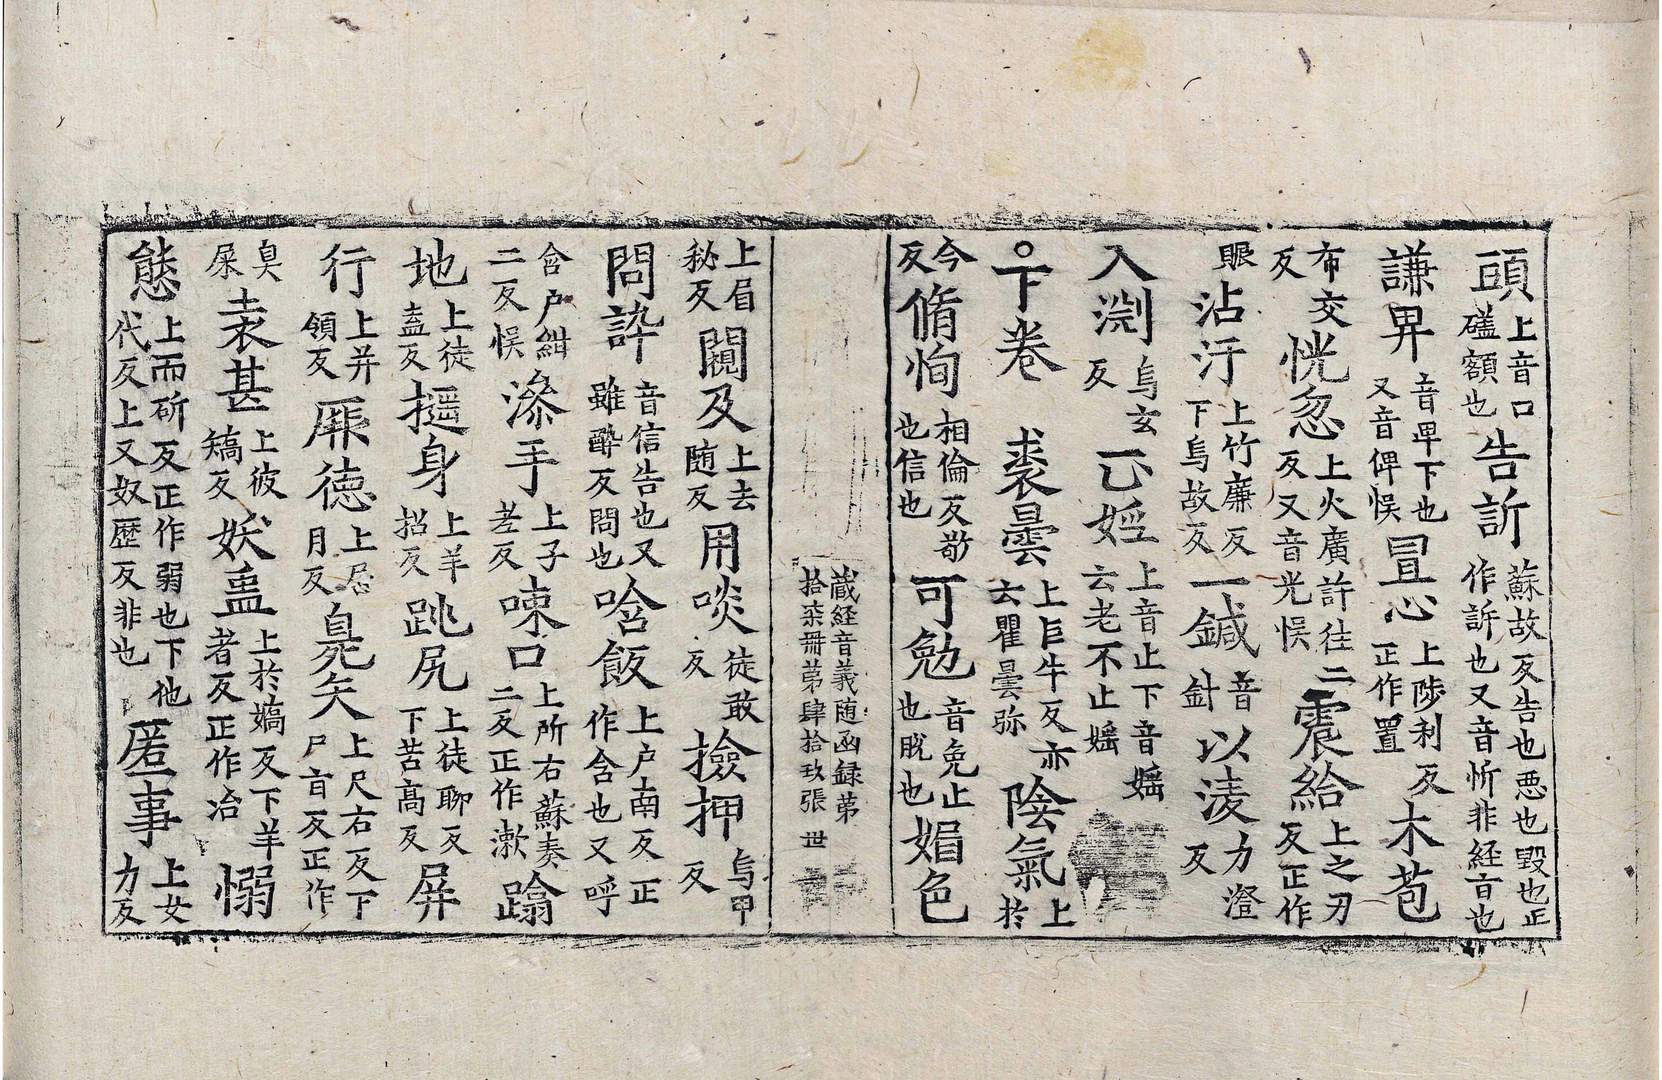 頭上音口礚額也告訴蘇故反告也惡也毀也正作訴也又音忻非經音也
謙畀音卑下也又音俾悞罝忈上陟利反正作置木苞
布交反恍忽上火廣許往二反又音光悞震給上之刃反正作
賑沾汙上竹廉反下烏故反一鍼音針以淩力澄反
入渕烏玄反㠪婬上音止下音婬云老不止婬
○下卷　裘曇上巨牛反亦云瞿曇弥陰氣上於
今反脩恂相倫反敬也信也可勉音免止也脫也媚色
藏經音義随函録苐拾柒冊苐肆拾玖張　世
上眉秘反闚及上去随反用啖徒敢反撿押烏甲反
問誶音信告也又雖醉反問也唅飯上户南反正作含也又呼
含户紺二反悞㵕手上子老反㖩口上所右蘇奏二反正作漱蹹
地上徒盍反搖身上羊招反跳尻上徒聊反下苦髙反屏
行上并領反厥徳上居月反臰矢上尺右反下尸旨反正作
臭屎表甚上彼矯反妖蛊上於嬌反下羊者反正作冶㥾
態上而斫反正作弱也下他代反上又奴歷反非也匿事上女力反